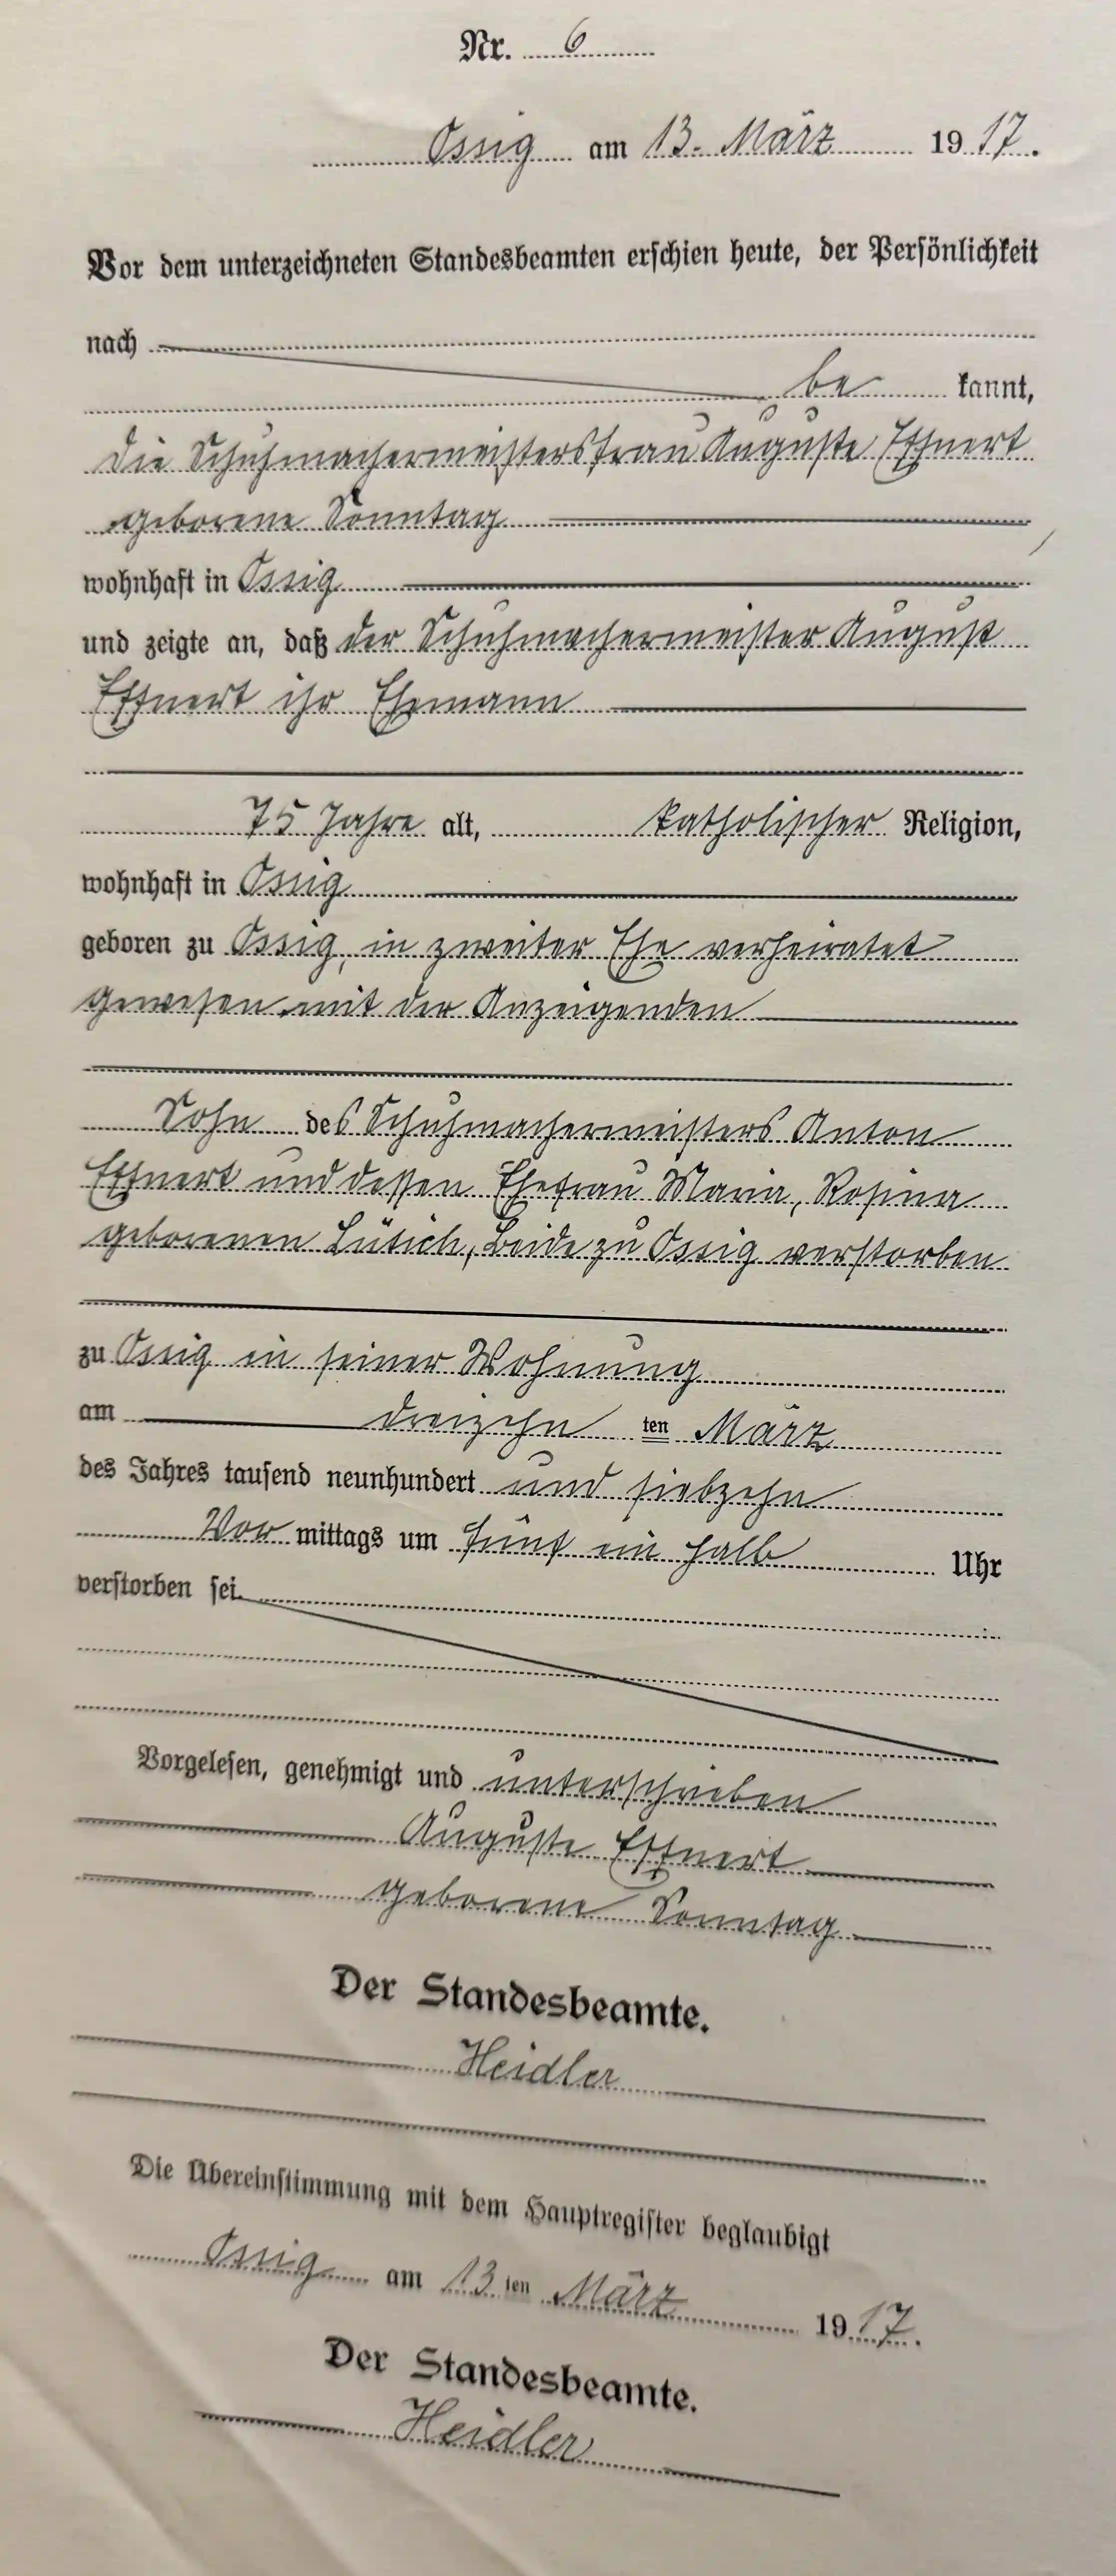 Nr. 6
Ossig am 13. März 1917.
Vor dem unterzeichneten Standesbeamten erschien heute, der Persönlichkeit
nach
be kannt,
die Schuhmachermeistersfrau Auguste Effnert
geborene Sonntag
wohnhaft in Ossig
und zeigte an, daß der Schuhmachermeister August
Effnert ihr Ehemann
75 Jahre alt, katholischer Religion,
wohnhaft in Ossig
geboren zu Ossig, in zweiter Ehe verheiratet
gewesen mit der Anzeigenden
Sohn des Schuhmachermeisters Anton
Effnert und dessen Ehefrau Maria, Rosina
geborenen beide zu Ossig verstorben
zu Ossig in seiner Wohnung
am dreizehn ten März
des Jahres tausend neunhundert und siebzehn
Vor mittags um fünf ein halb Uhr
verstorben sei.
Vorgelesen, genehmigt und unterschrieben
Auguste Effnert
geborene Sonntag
Der Standesbeamte.
Heidler
Die Übereinstimmung mit dem Hauptregister beglaubigt
Ossig am 13 ten März 1917.
Der Standesbeamte.
Heidler